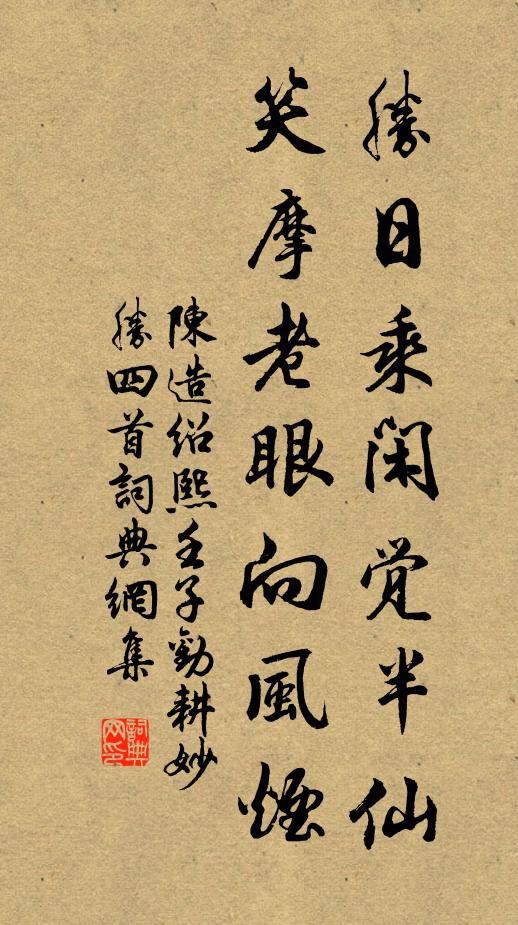 勝日乘閑覺半仙
笑摩老眼向風煙
陳造紹熙壬子勸耕妙
勝四首詞典網集
詞典
網印